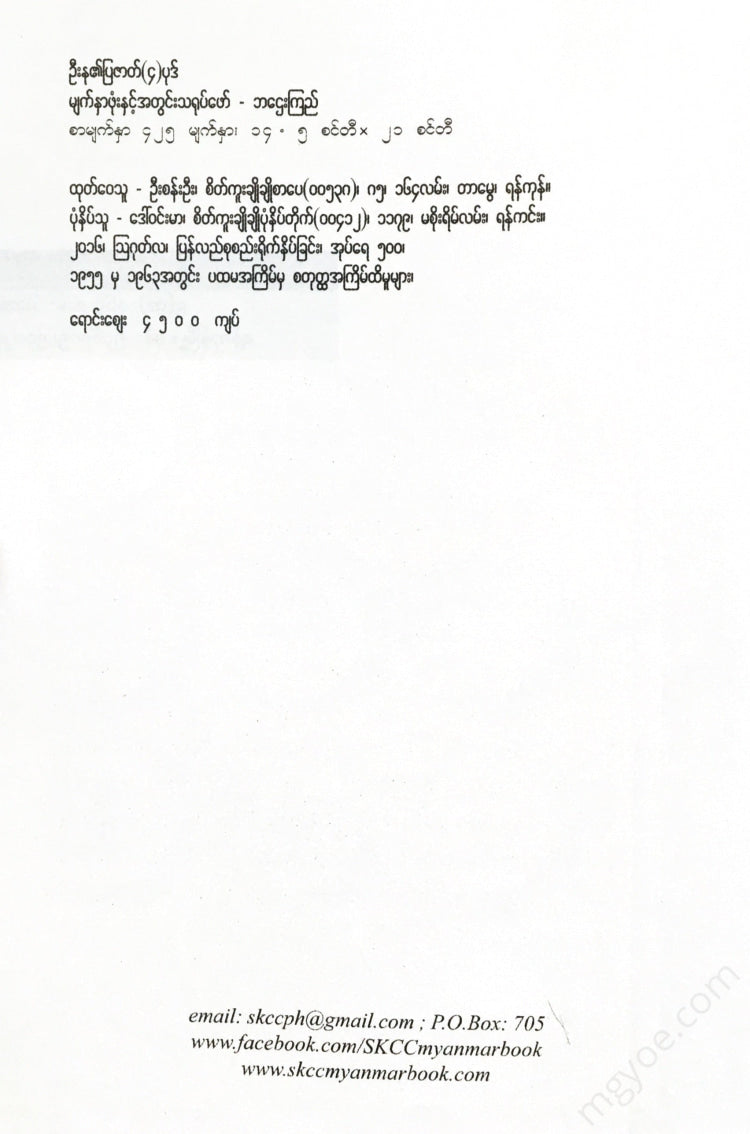 ဦးန၏ပြဇာတ်(၄)ပုဒ်
မျက်နှာဖုံးနှင့်အတွင်းသရုပ်ဖော် - ဘဌေးကြည်
စာမျက်နှာ ၄၂၅ မျက်နှာ၊ ၁၄ . ၅ စင်တီ× ၂၁ စင်တီ
ထုတ်ဝေသူ - ဦးစန်းဦး၊ စိတ်ကူးချိုချိုစာပေ(၀၀၅၃၈)၊ ဂ၅၊ ၁၆၄လမ်း၊ တာမွေ၊ ရန်ကုန်။
ပုံနှိပ်သူ - ဒေါ်ဝင်းမာ၊ စိတ်ကူးချိုချိုပုံနှိပ်တိုက်(၀၀၄၁၂)၊ ၁၁၇၉၊ မစိုးရိမ်လမ်း၊ ရန်ကင်း။
၂၀၁၆၊ ဩဂုတ်လ၊ ပြန်လည်စုစည်းရိုက်နှိပ်ခြင်း၊ အုပ်ရေ ၅၀၀၊
၁၉၅၅ မှ ၁၉၆၃အတွင်း ပထမအကြိမ်မှ စတုတ္ထအကြိမ်ထိမူများ၊
ရောင်းဈေး ၄ ၅ ၀ ၀ ကျပ်
email: skccph@gmail.com ; P.O.Box: 705
www.facebook.com/SKCCmyanmarbook
www.skccmyanmarbook.com
mgyoe.com